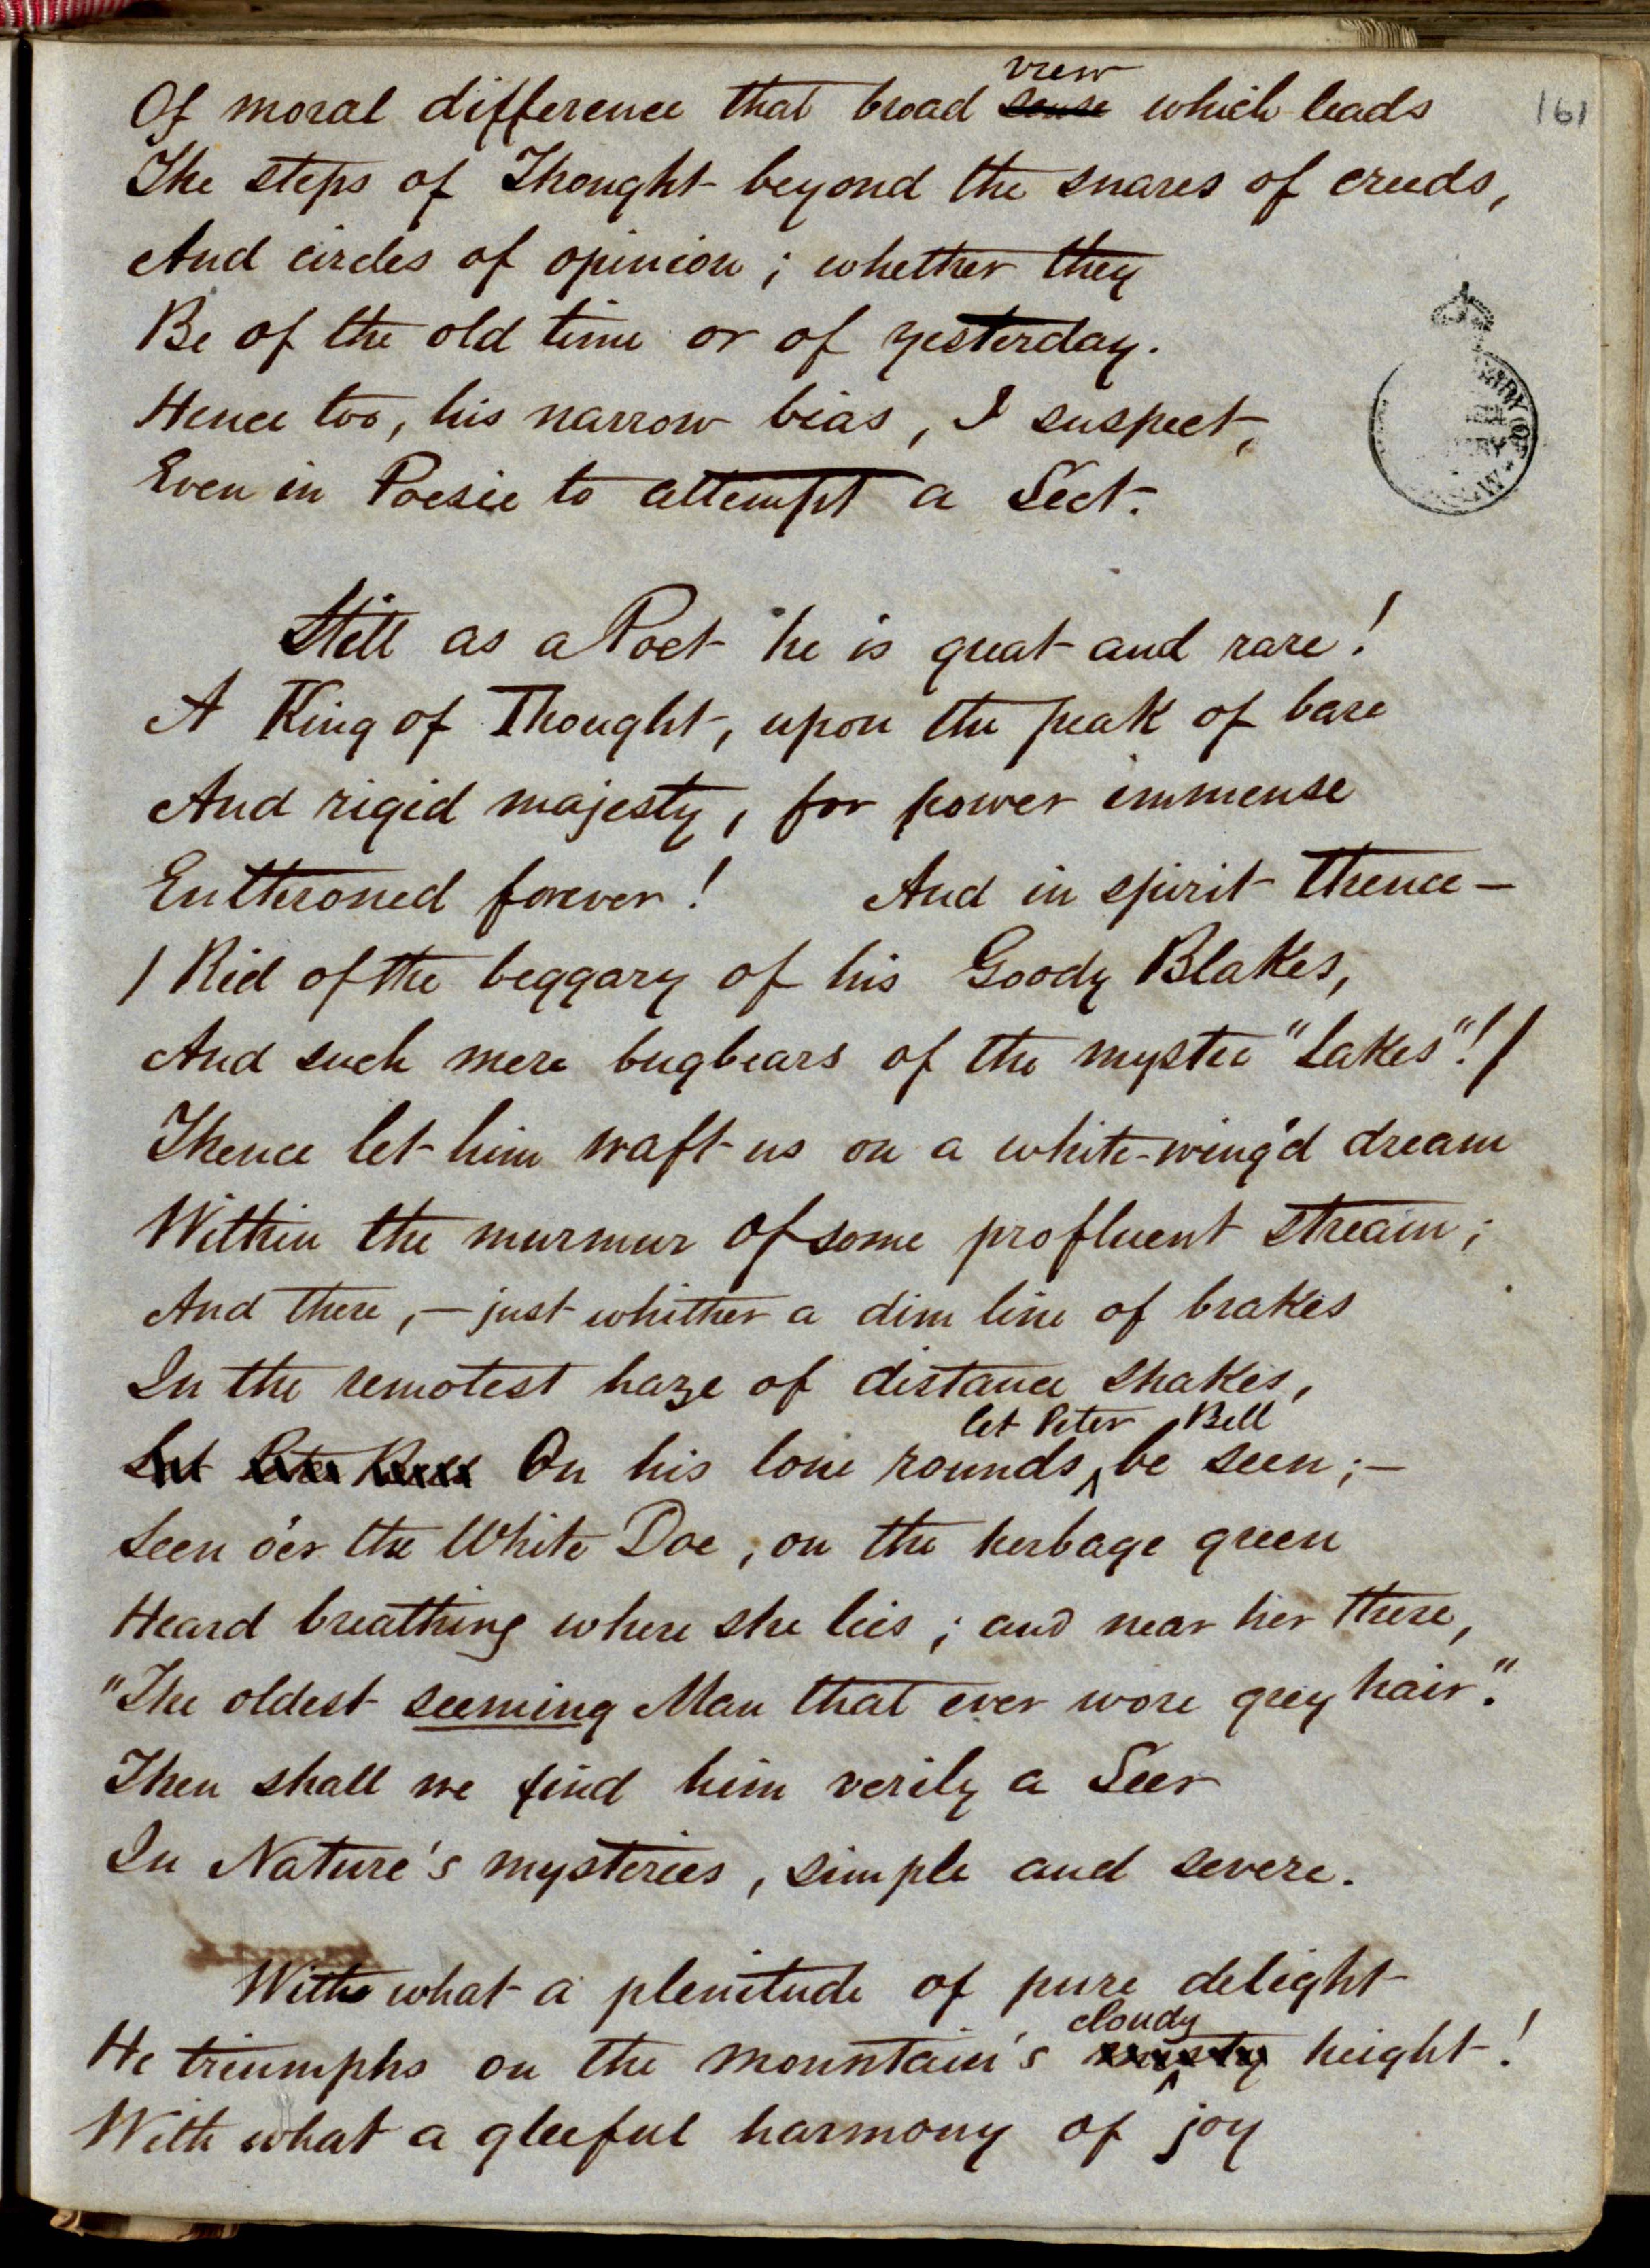 161
Of moral difference that broad ~~sense~~ view which leads
The steps of Thought beyond the snares of creeds,
And circles of opinion; whether they
Be of the old time or of yesterday.
Hence too, his narrow bias, I suspect,
Even in Poesie to attempt a Sect.
Still as a Poet he is great and rare!
A King of Thought, upon the peak of bare
And rigid majesty, for power immense
Enthroned forever! And in spirit thence—
/ Rid of the beggary of his Goody Blakes,
And such mere bugbears of the mystic "Lakes"! /
Thence let him waft us on a white-wing'd dream
Within the murmur of some profluent stream;
And there,— just whither a dim line of brakes
In the remotest haze of distance shakes,
~~Let Peter Bell~~ On his lone rounds, let Peter Bell be seen;—
Seen o'er the White Doe, on the herbage green
Heard breathing where she lies; and near her there,
"The oldest seeming Man that ever wore grey hair."
Then shall we find him verily a Seer
In Nature's mysteries, simple and severe.
With what a plenitude of pure delight
He triumphs on the mountain's ~~misty~~ cloudy height!
With what a gleeful harmony of joy